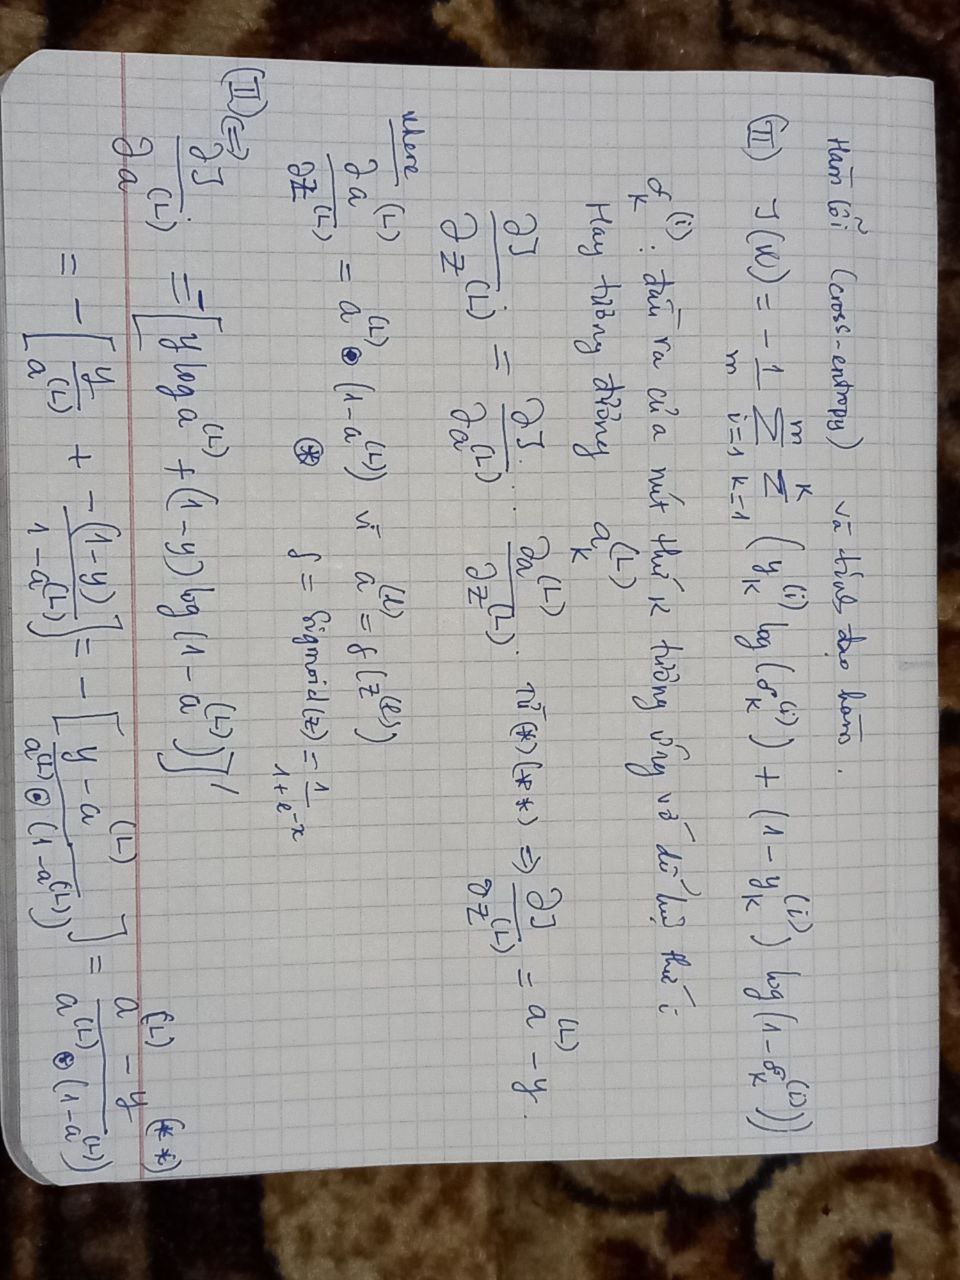 Hàm lỗi (cross-entropy) và tính đạo hàm.
(II) J(W) = -1/m Σ_{i=1}^{m} Σ_{k=1}^{K} (y_k^(i) log(σ_k^(i)) + (1 - y_k^(i)) log(1 - σ_k^(i)))
σ_k^(i): đầu ra của nút thứ k tương ứng với dữ liệu thứ i
Hay tương đương a_k^(L)
∂J/∂z^(L) = ∂J/∂a^(L) . ∂a^(L)/∂z^(L). Từ (*) (**) ⇒ ∂J/∂z^(L) = a^(L) - y.
where
∂a^(L)/∂z^(L) = a^(L) ⊙ (1-a^(L)) vì a^(l) = f(z^(l))
(*) f = Sigmoid(z) = 1/(1+e^-x)
(II) ⇔
∂J/∂a^(L) = -[y log a^(L) + (1-y) log(1 - a^(L))]'
= -[y/a^(L) + -(1-y)/(1-a^(L))] = -[(y - a^(L))/(a^(L) ⊙ (1-a^(L)))] = (a^(L) - y)/(a^(L) ⊙ (1-a^(L))) (**)